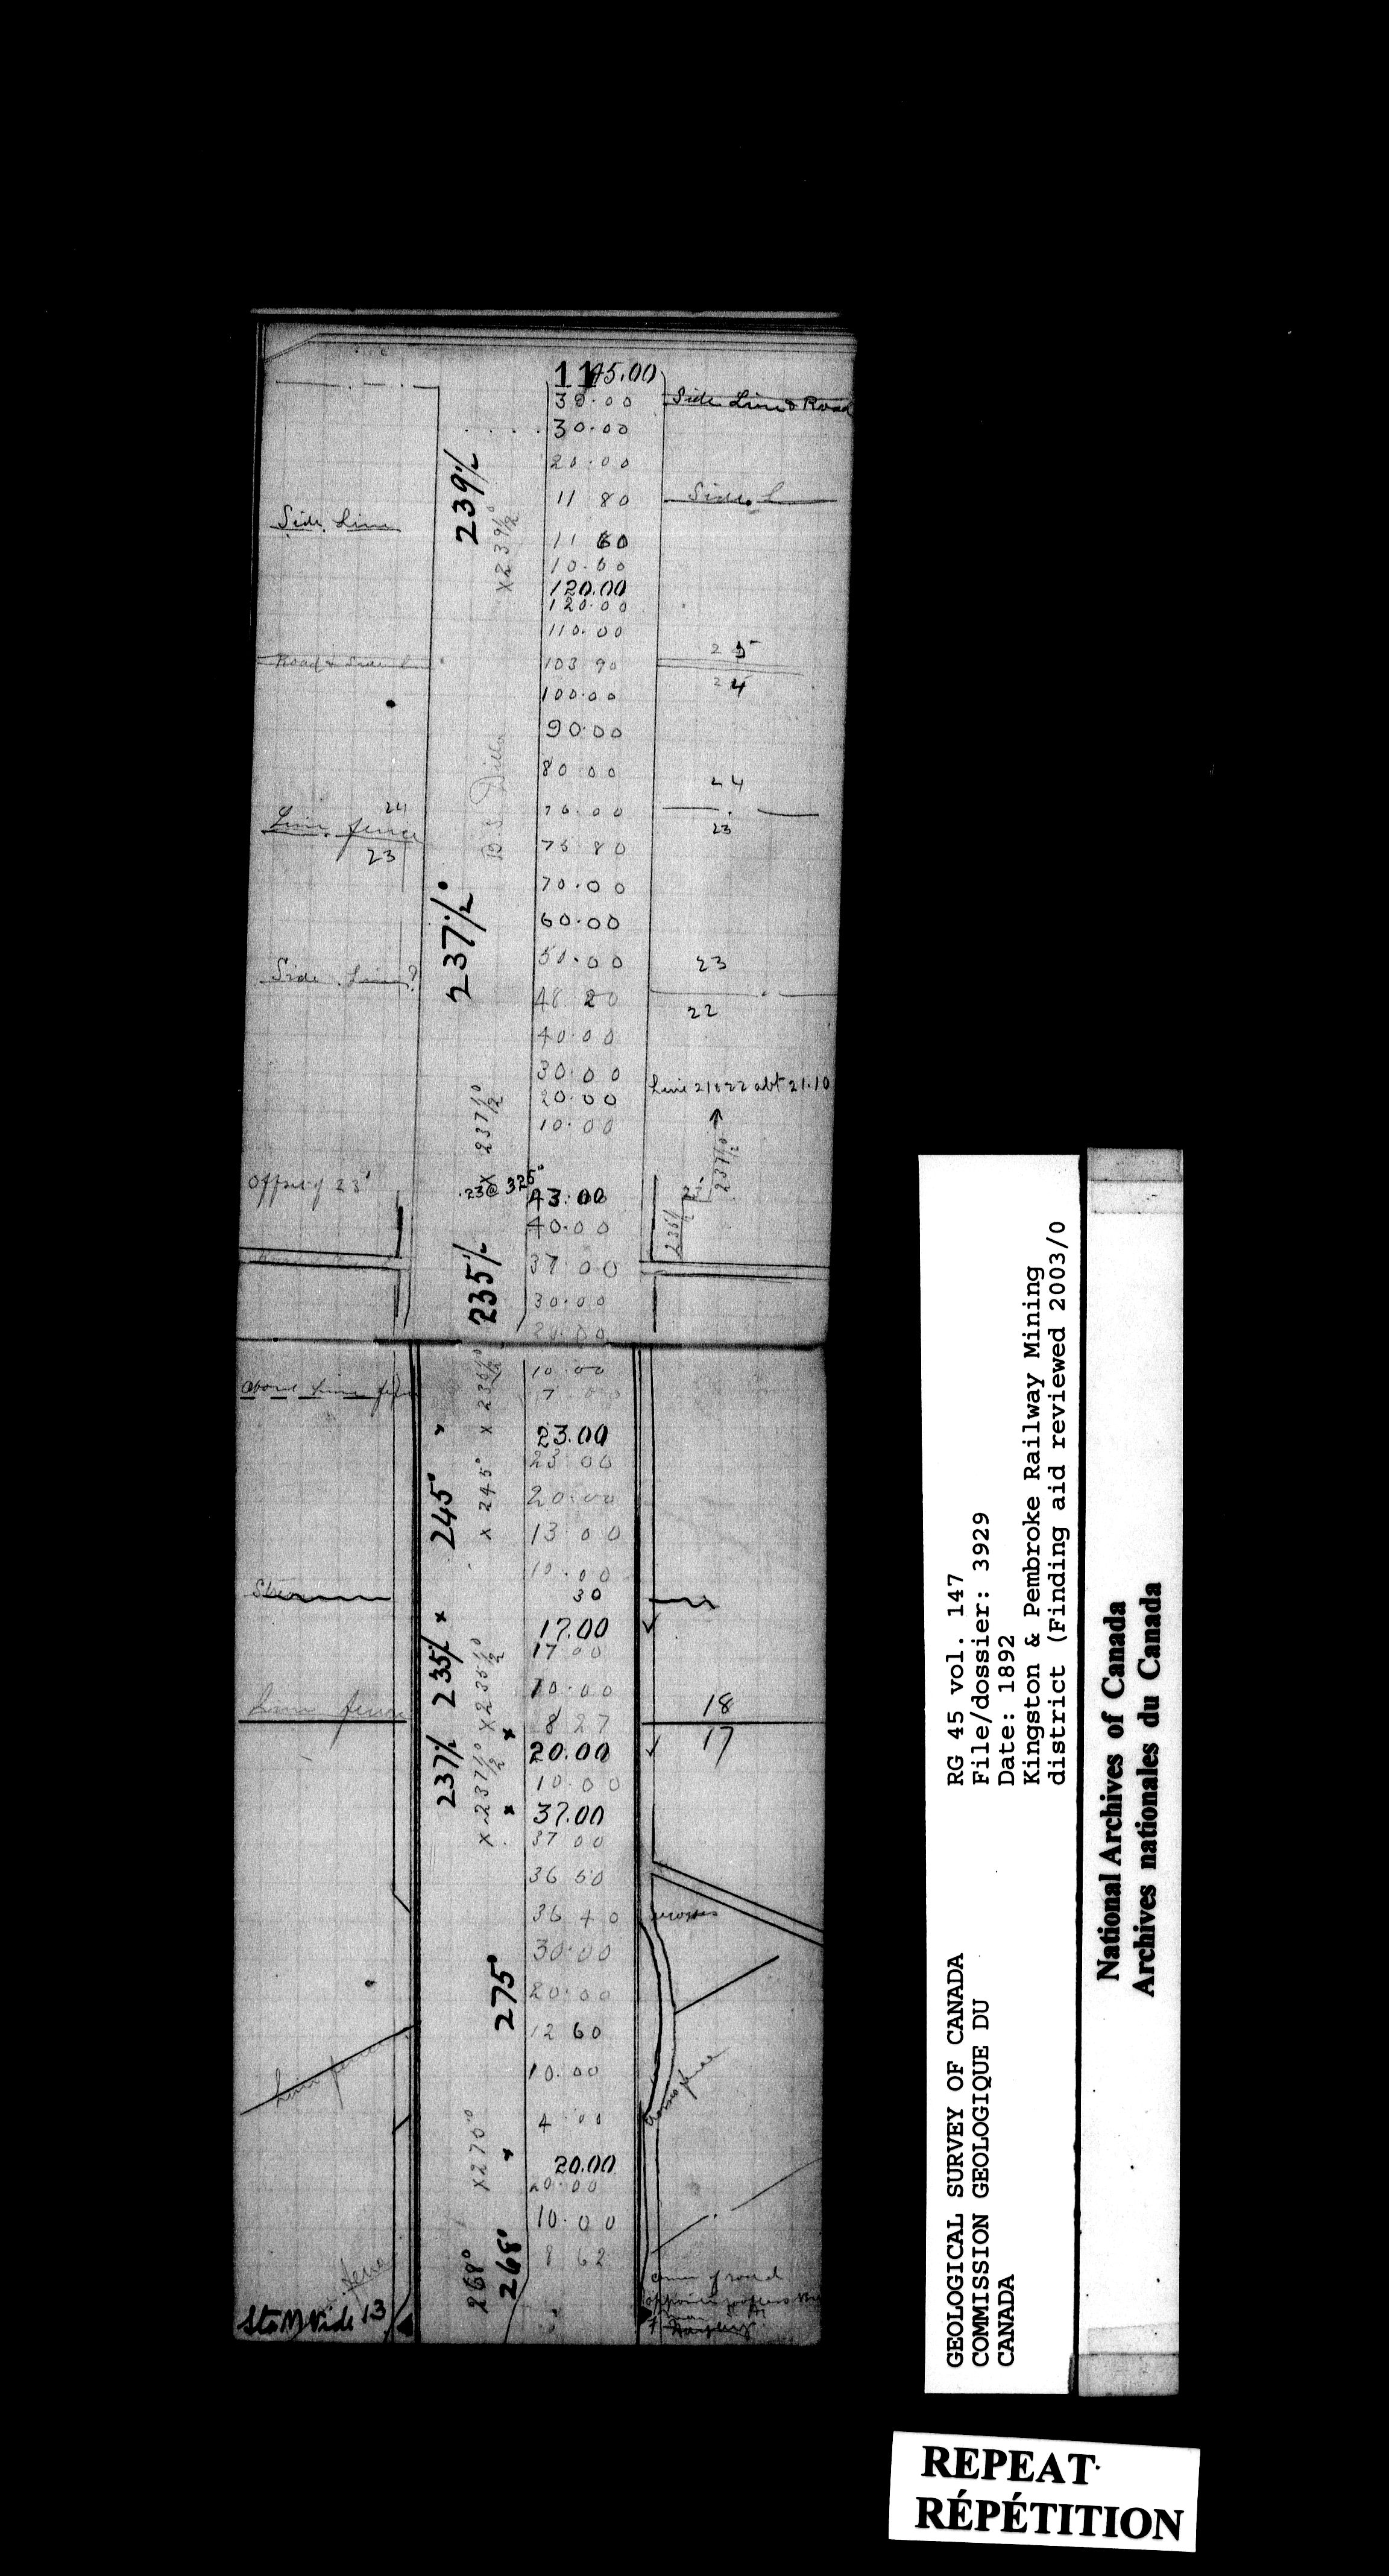 11 45.00
38.00 Side Line & Road
30.00
20.00
11 80 Side L
Side Line
239 1/2
x 239 1/2°
11 60
10.60
120.00
120.00
110.00
25
Road & Side Line 103 90
24
100.00
90.00
80 00
24
24
Line fence 76.00
23
23
75 80
B.S.
70.00
60.00
237 1/2°
50.00
23
Side Line?
48 20
22
40.00
30.00
Line 21 & 22 abt 21.10
20.00
10.00
x 237 1/2°
237 1/2°
Offset of 23'
.23 @ 325°
43.00
235 1/2
23
40.00
37 00
235 1/2
30.00
20.00
10.00
7 00
x 235 1/2°
23.00
23 00
245°
x 245°
20.00
13 00
10.00
30
Stream
17.00
17 00
235 1/2
x 235 1/2°
10.00
Line fence
18
8 27
17
20.00
237 1/2
x 237 1/2°
10.00
37.00
37 00
36 50
36 40 crosses
30.00
275°
20.00
12 60
10.00
Line fence
Cross fence
4 00
x 270°
20.00
20.00
10.00
8 62
268°
268°
fence
corner of road
opposite
Sta M Vide 13
RG 45 vol. 147
File/dossier: 3929
Date: 1892
Kingston & Pembroke Railway Mining
district (Finding aid reviewed 2003/0
GEOLOGICAL SURVEY OF CANADA
COMMISSION GEOLOGIQUE DU
CANADA
National Archives of Canada
Archives nationales du Canada
REPEAT
RÉPÉTITION